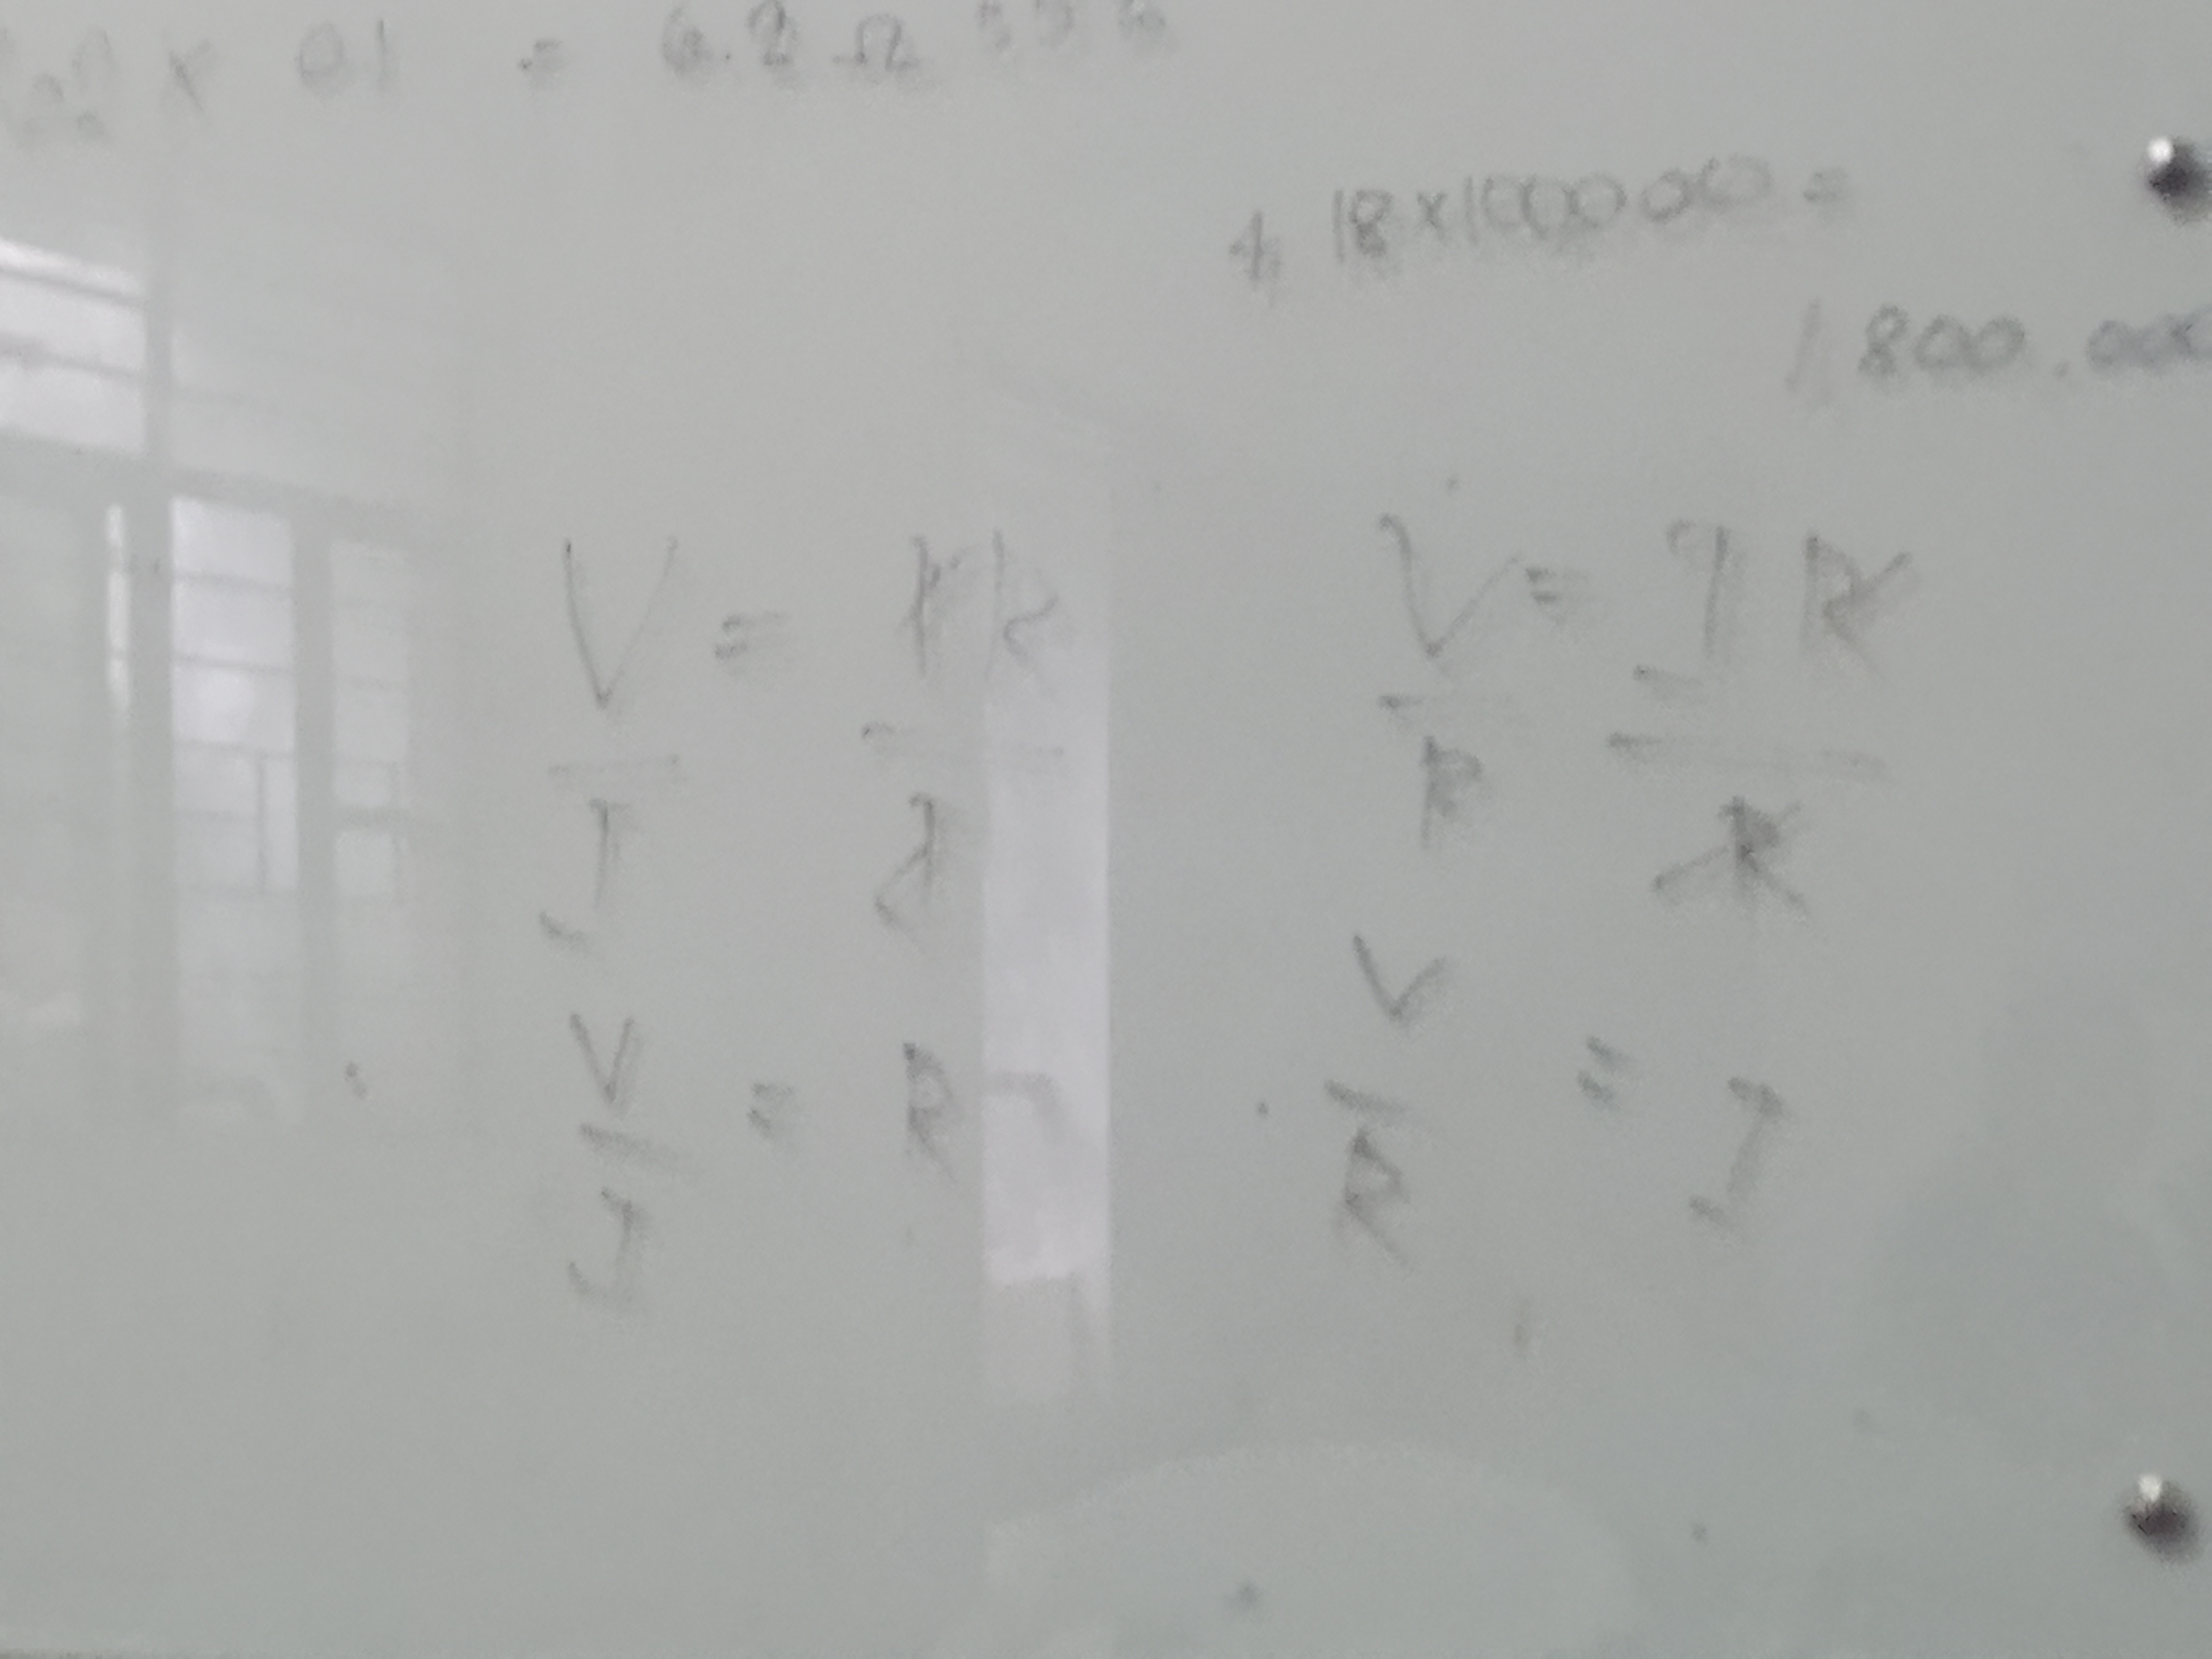 x 0.1 = 6.2 Ω
4, 18x100000 =
1,800.000
V = IR
I I
V = IR
R R
V
I = R
V
R = I